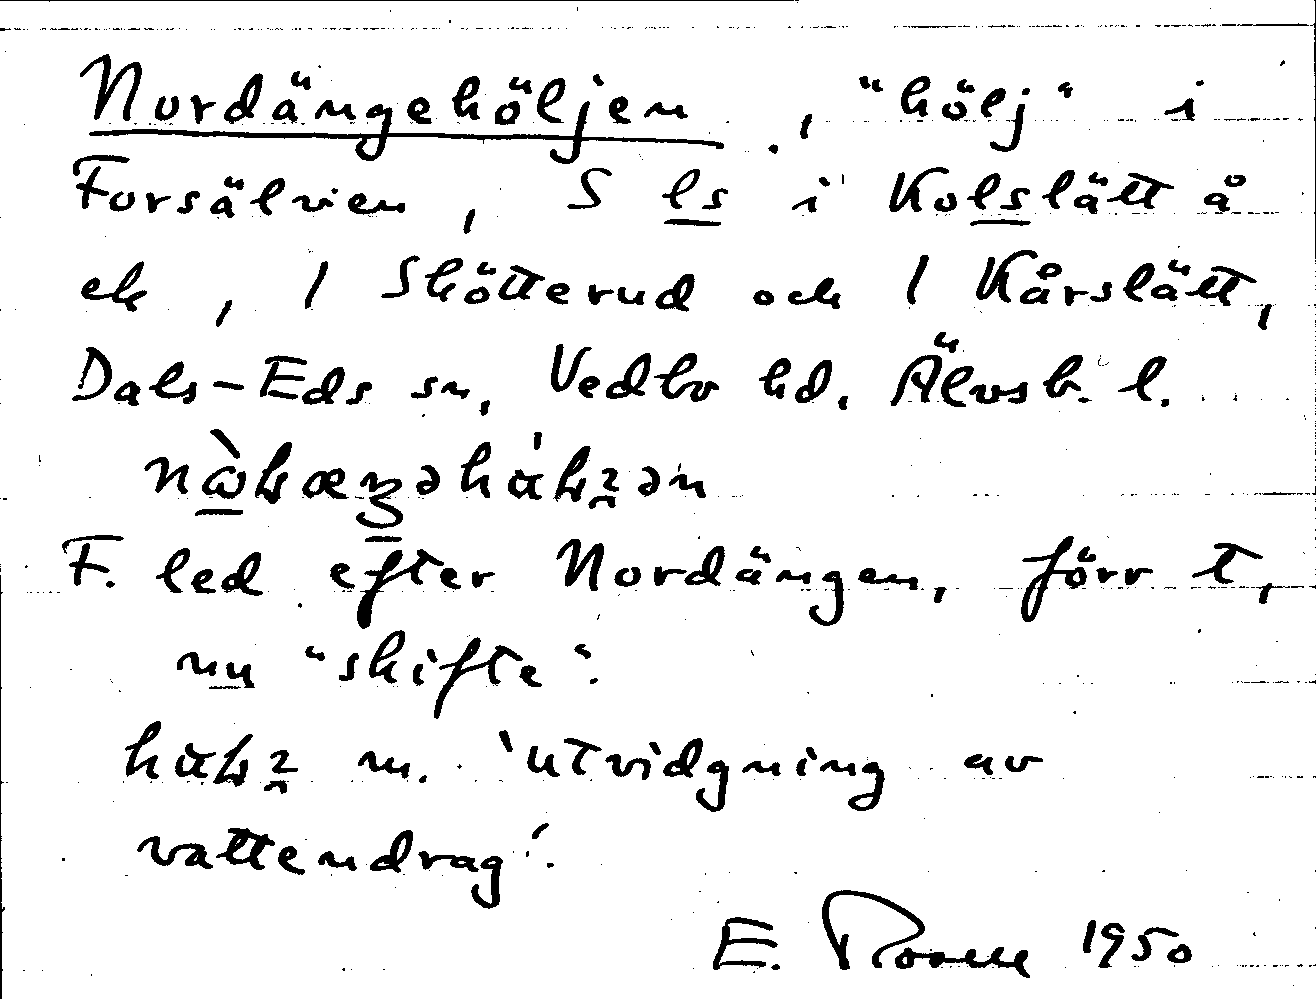 Nordängehöljen, "hölj" i
Forsälven, S ls i Kolslätt å
ek, / Skötterud och / Kårslätt,
Dals-Eds sn, Vedbo hd. Älvsb. l.
F. led efter Nordängen, förr t,
nu "skifte".
m. 'utvidgning av
vattendrag'.
E. 1950